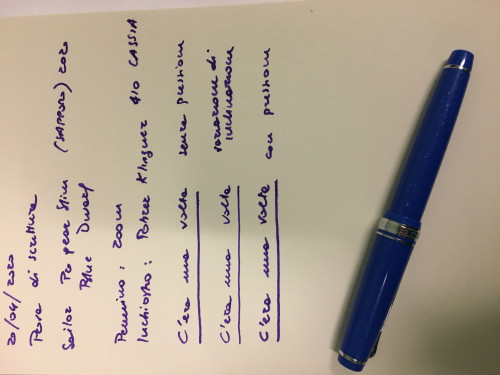 20/04/2020
Prova di scrittura
Sailor Pro gear Slim (SAPPORO) 2020
Blue Dwarf
Pennino: zoom
Inchiostro: Rohrer Klingner 410 CASSIA
C'era una volta senza pressione
C'era una volta variazione di inclinazione
C'era una volta con pressione